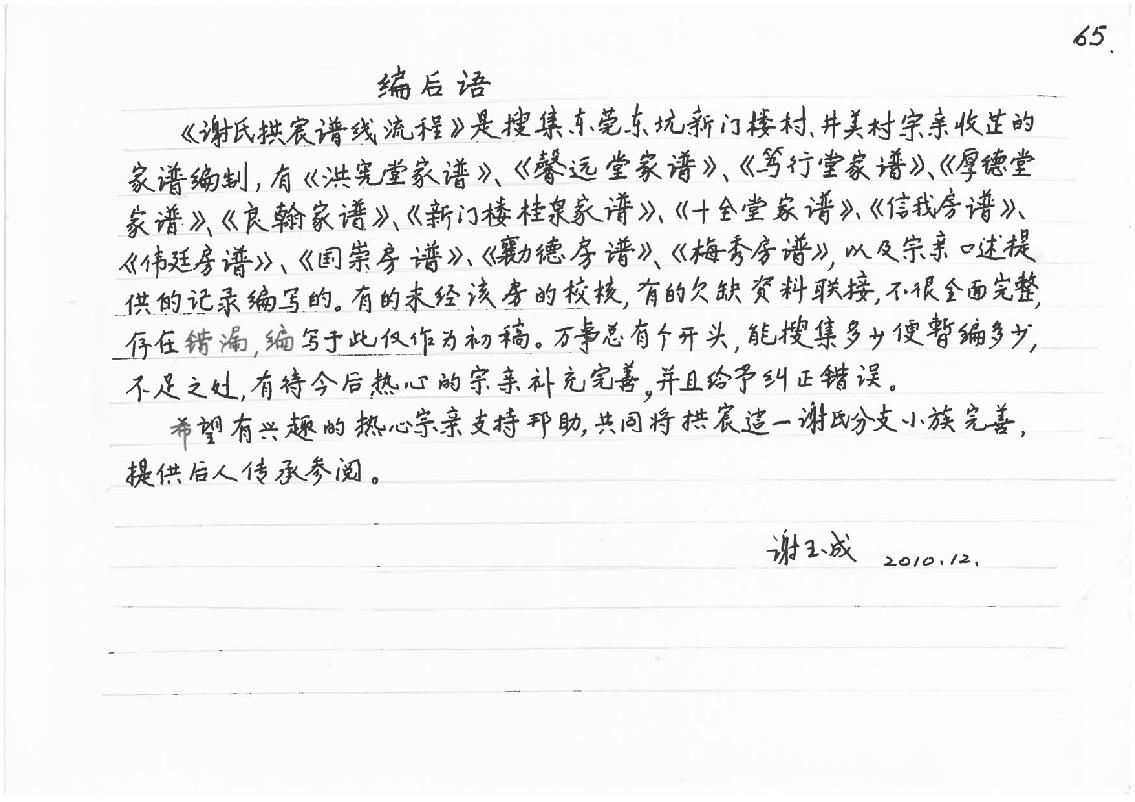 65.
编后语
《谢氏拱宸谱线流程》是搜集东莞东坑新门楼村、井美村宗亲收芷的
家谱编制,有《洪宪堂家谱》、《馨远堂家谱》、《笃行堂家谱》、《厚德堂
家谱》、《良翰家谱》、《新门楼桂泉家谱》、《十全堂家谱》、《信我房谱》、
《伟廷房谱》、《国崇房谱》、《勷德房谱》、《梅秀房谱》,以及宗亲口述提
供的记录编写的。有的未经该房的校核,有的欠缺资料联接,不很全面完整,
存在错漏,编写于此仅作为初稿。万事总有个开头,能搜集多少便暂编多少,
不足之处,有待今后热心的宗亲补充完善,并且给予纠正错误。
希望有兴趣的热心宗亲支持帮助,共同将拱宸这一谢氏分支小族完善,
提供后人传承参阅。
谢玉成 2010.12.